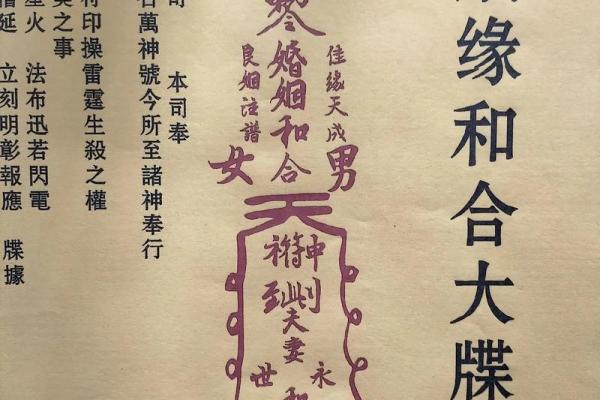 缘和合大牒
佳缘天成
婚姻和合
良姻注譜
男
女
天
夫妻
永
世
和
司 本司奉
萬神號今所至諸神奉行
印操雷霆生殺之權
之事
火 法布迅若閃電
延 立刻明彰報應 牒據